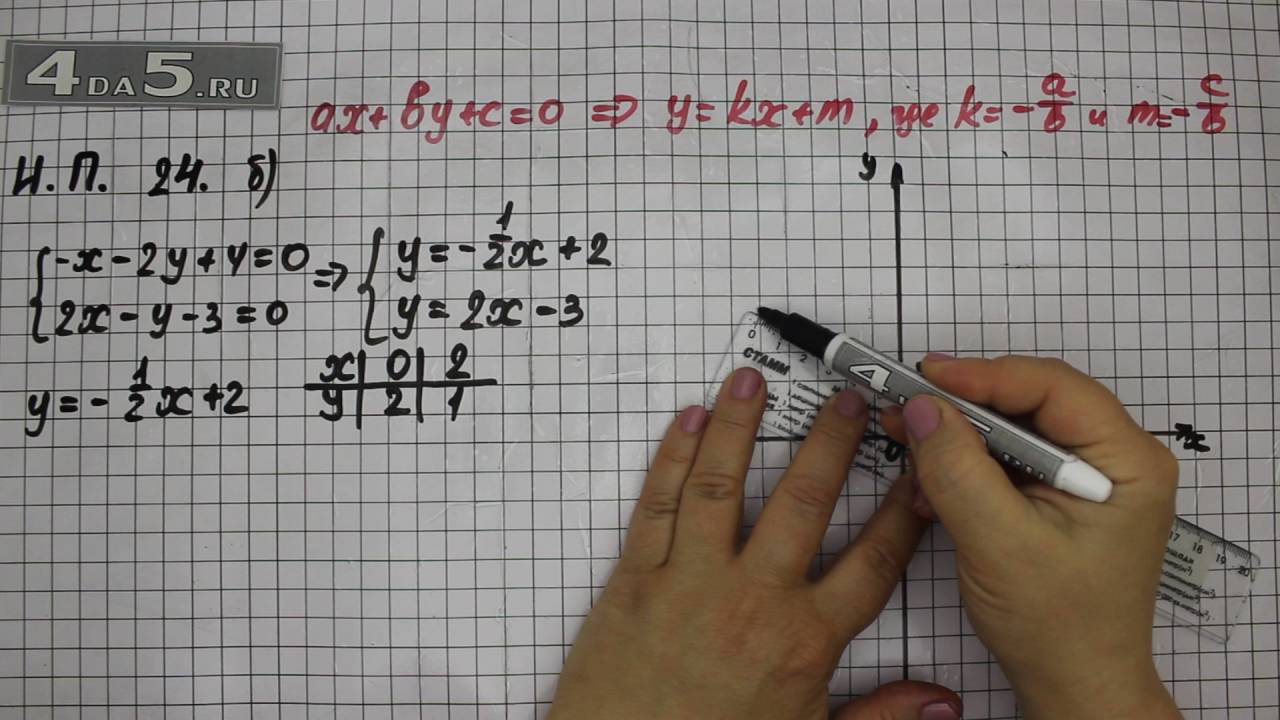 4DA5.RU
ax+вy+c=0 ⇒ y=kx+m, где k=-a/в и m=-c/в
И.П. 24. б)
{-x-2y+4=0 ⇒ {y=-1/2x+2
{2x-y-3=0 {y=2x-3
y=-1/2x+2
x | 0 | 2
y | 2 | 1
y
x
0
0 1 2
СТАММ
17 18 19 20